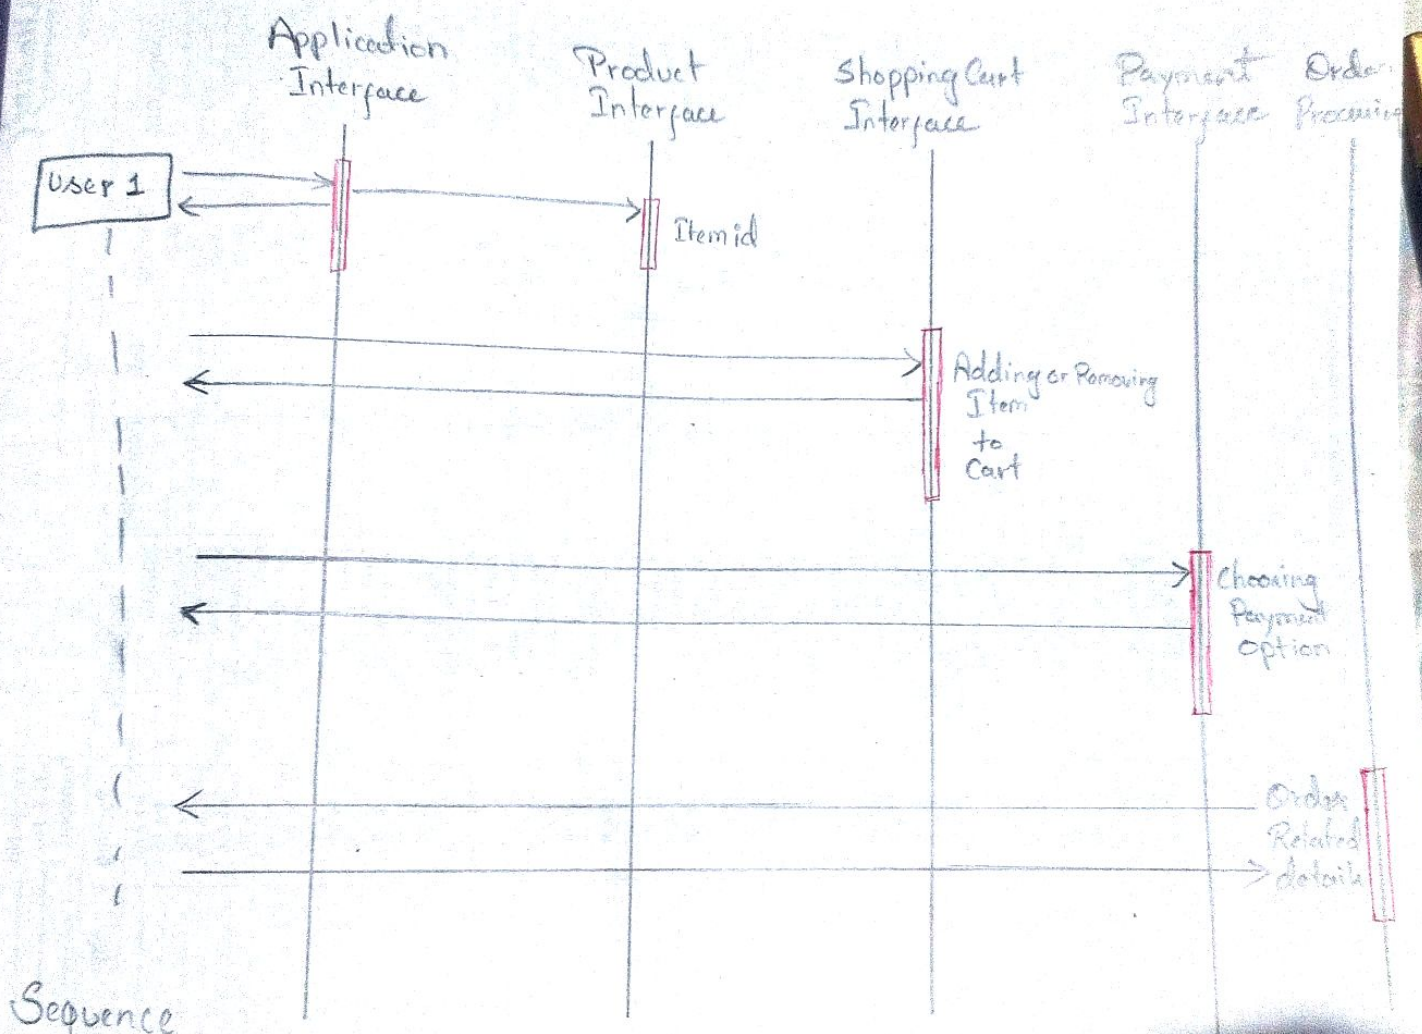 Application
Interface
Product
Interface
Shopping Cart
Interface
Payment
Interface
User 1
Item id
Adding or Removing
Item
to
Cart
Choosing
Payment
option
Order
Related
details
Sequence